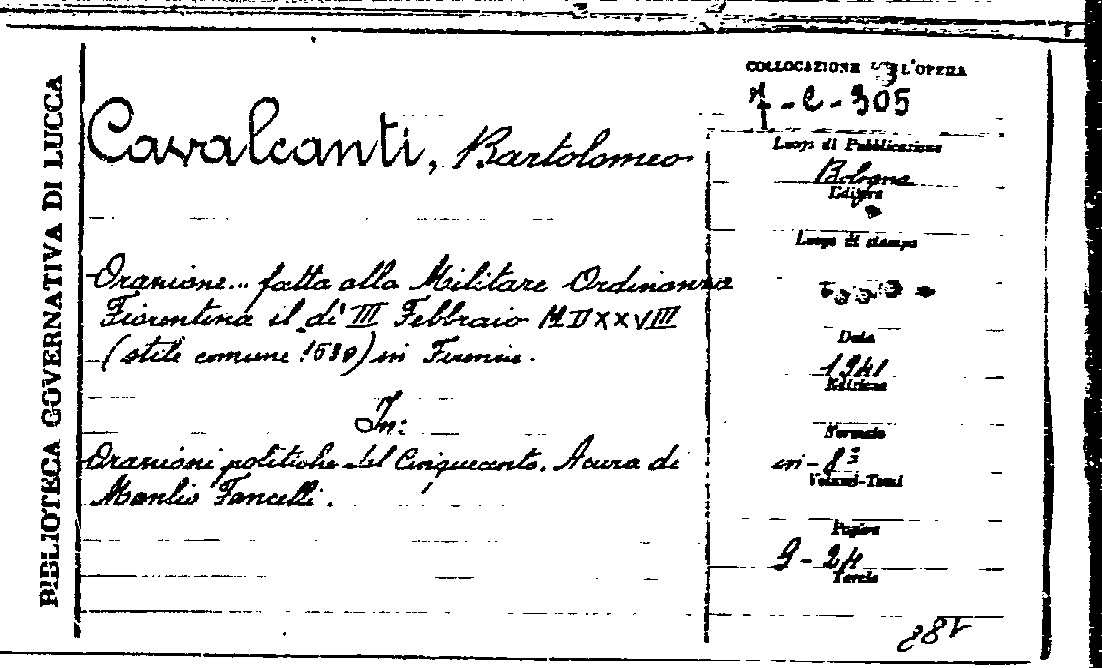 BIBLIOTECA GOVERNATIVA DI LUCCA
Cavalcanti, Bartolomeo
Orazione... fatta alla Militare Ordinanza
Fiorentina il dì III Febbraio MDXXVIII
(stile comune 1530) in Firenze.
In:
Orazioni politiche del Cinquecento. A cura di
Manlio Fancelli.
COLLOCAZIONE DELL'OPERA
7-C-305
Luogo di Pubblicazione
Bologna
Editore
Luogo di stampa
Data
1941
Edizione
Formato
in-8°
Volumi-Tomi
Pagine
9-24
Tavole